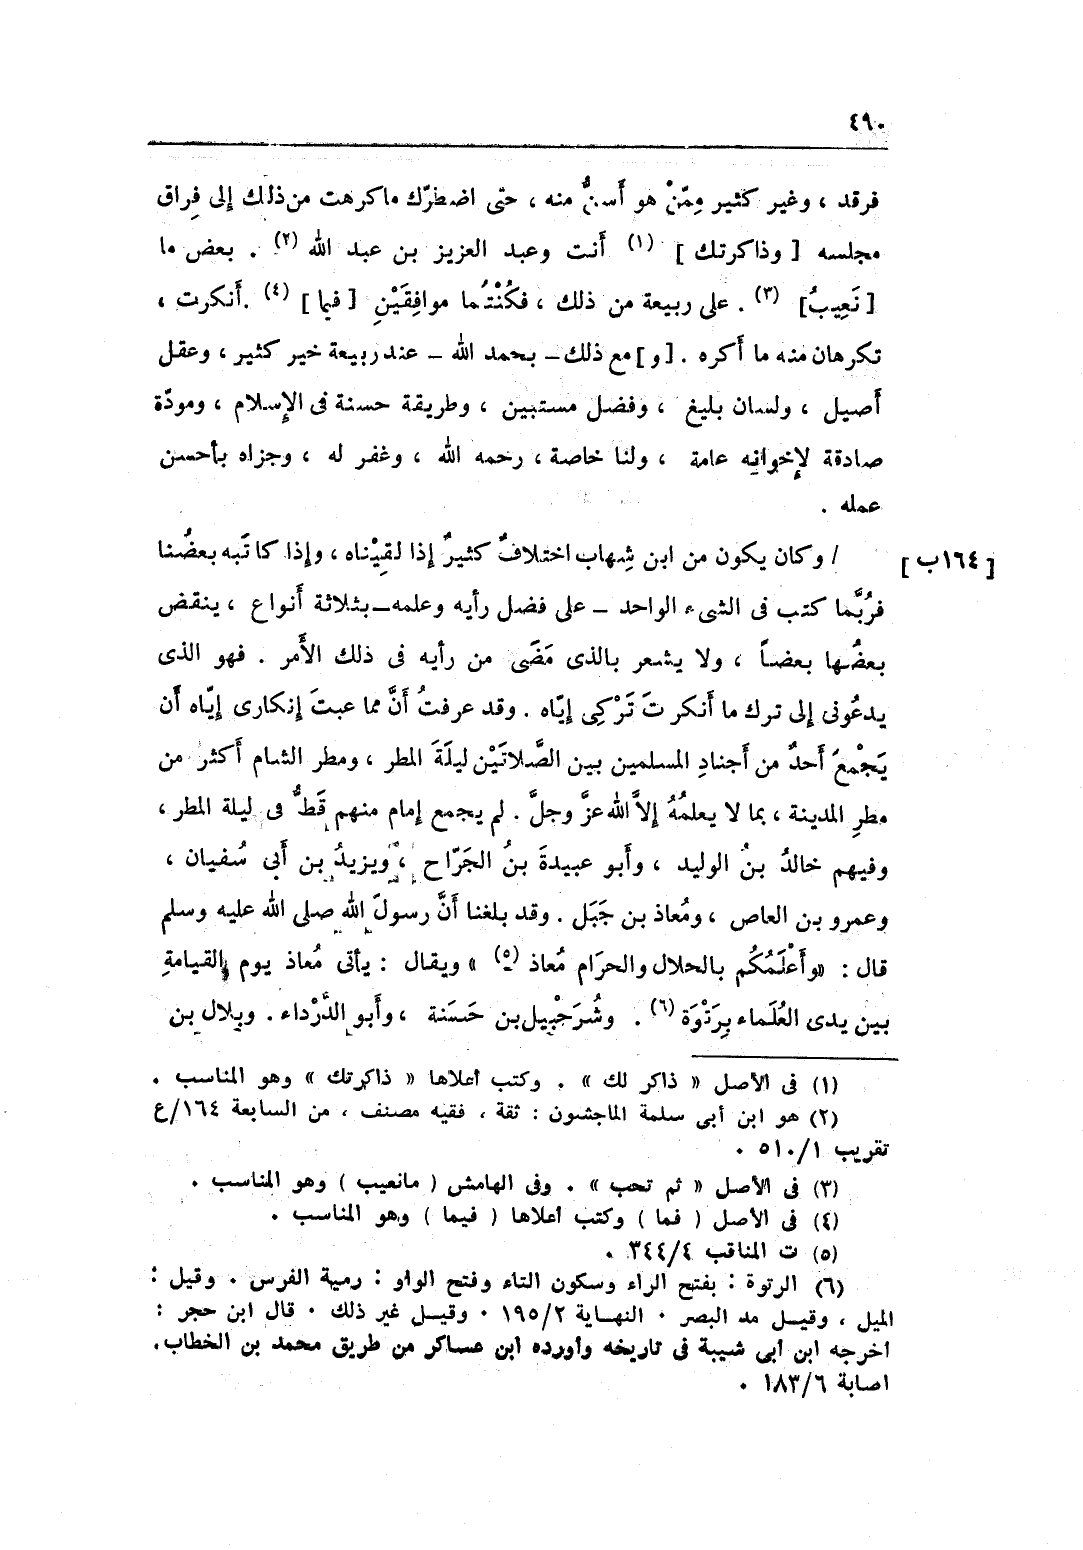 ٤٩٠
فرقد ، وغير كثير مِمّنْ هو أَسنُّ منه ، حتى اضطرّك ماكرهت من ذلك إلى فِراق
مجلسه [ وذاكرتك ] (١) أنت وعبد العزيز بن عبد الله (٢) . بعض ما
[ نَعِيبُ ] (٣) . على ربيعة من ذلك ، فكُنْتُما موافِقَيْنِ [ فيما ] (٤) .أَنكرت ،
تكرهان منه ما أَكره . [ و ] مع ذلك – بحمد الله – عند ربيعة خير كثير ، وعقل
أَصيل ، ولسان بليغ ، وفضل مستبين ، وطريقة حسنة فى الإِسلام ، ومودّة
صادقة لإِخوانِه عامة ، ولنا خاصة ، رحمه الله ، وغفر له ، وجزاه بأحسن
عمله .
[ ١٦٤ب ] / وكان يكون من ابن شِهاب اختلافٌ كثيرٌ إذا لقِيْناه ، وإذا كاتَبه بعضُنا
فرُبَّما كتب فى الشىء الواحد – على فضل رأيه وعلمه – بثلاثة أنواع ، ينقض
بعضُها بعضاً ، ولا يشعر بالذى مَضَى من رأيه فى ذلك الأَمر . فهو الذى
يدعُونى إلى ترك ما أَنكرتَ تَرْكِى إيّاه . وقد عرفتُ أَنَّ مما عبتَ إنكارى إيّاه أن
يَجْمعَ أَحدٌ من أَجنادِ المسلمين بين الصَّلاتَيْن ليلَةَ المطر ، ومطر الشام أَكثر من
مطرِ المدينة ، بما لا يعلمُهُ إلاَّ الله عزَّ وجلَّ . لم يجمع إمام منهم قَطُّ فى ليلة المطر ،
وفيهم خالدُ بنُ الوليد ، وأَبو عبيدةَ بنُ الجَرّاح ، ويزيدُ بن أَبى سُفيان ،
وعمرو بن العاص ، ومُعاذ بن جَبَل . وقد بلغنا أَنَّ رسولَ الله صلى الله عليه وسلم
قال : «وأَعْلَمُكُم بالحلال والحرَام مُعاذ (٥) » ويقال : يأتى مُعاذ يوم القيامةِ
بين يدى العُلَماء بِرَتْوَة (٦) . وشُرَحْبِيل بن حَسَنة ، وأَبو الدَّرْداء . وبلال بن
(١) فى الأصل « ذاكر لك » . وكتب أعلاها « ذاكرتك » وهو المناسب .
(٢) هو ابن أبى سلمة الماجشون : ثقة ، فقيه مصنف ، من السابعة ١٦٤/ع
تقريب ٥١٠/١ .
(٣) فى الأصل « ثم تحب » . وفى الهامش ( مانعيب ) وهو المناسب .
(٤) فى الأصل ( فما ) وكتب أعلاها ( فيما ) وهو المناسب .
(٥) ت المناقب ٣٤٤/٤ .
(٦) الرتوة : بفتح الراء وسكون التاء وفتح الواو : رمية الفرس . وقيل :
الميل ، وقيل مد البصر . النهاية ١٩٥/٢ . وقيل غير ذلك . قال ابن حجر :
اخرجه ابن أبى شيبة فى تاريخه وأورده ابن عساكر من طريق محمد بن الخطاب .
اصابة ١٨٣/٦ .